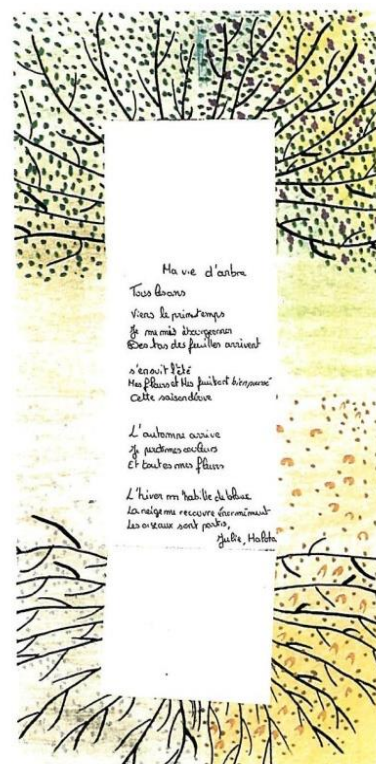 Ma vie d'arbre
Tous les ans
Viens le printemps
Je me mès à bourgeonner
Des tas des feuilles arrivent
s'ensuit l'été
Mes fleurs et Mes fruits ont bien poussé
Cette saison
L'automne arrive
Je perd mes couleurs
Et toutes mes fleurs
L'hiver m'habille de blanc
La neige me recouvre énormément
Les oiseaux sont partis,
Julie,